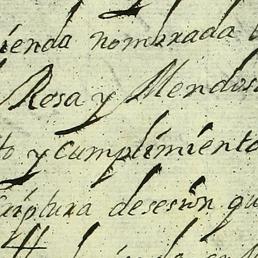 ienda nombrada
Rosa y Mendos
to y cumplimiento
criptura desesion qu